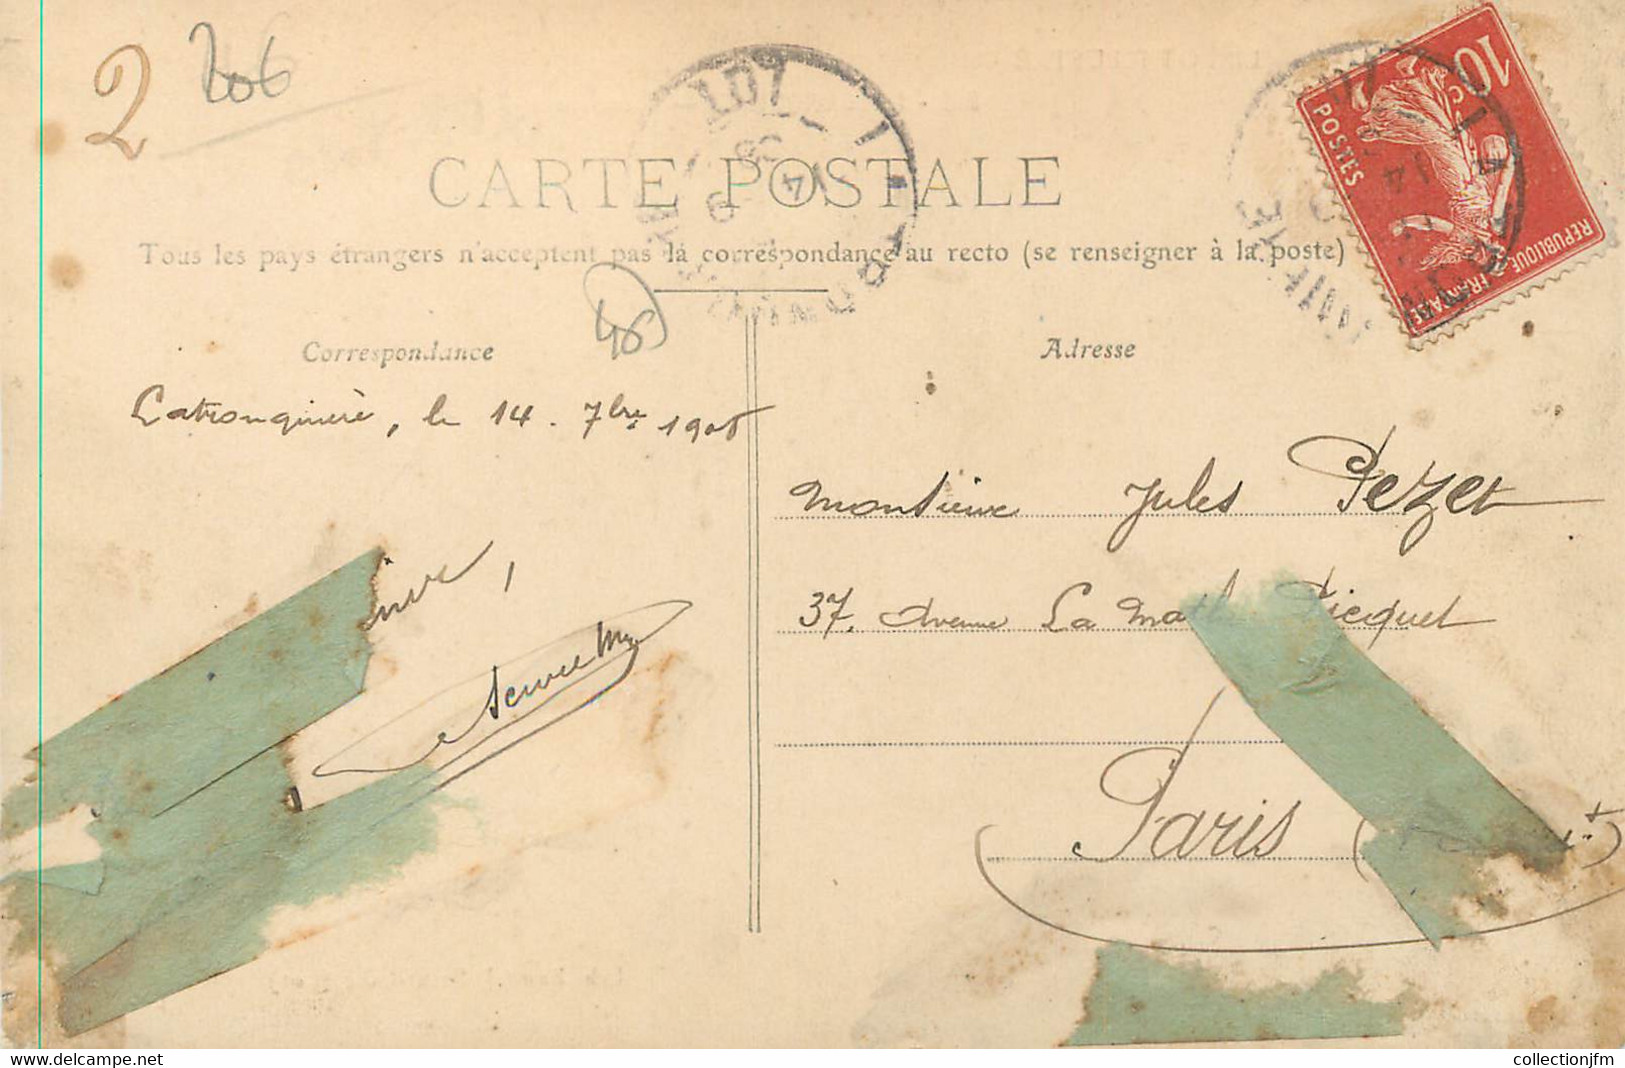 2
206
CARTE POSTALE
Tous les pays étrangers n'acceptent pas la correspondance au recto (se renseigner à la poste)
46
Correspondance
Adresse
10c
POSTES
REPUBLIQUE FRANCAISE
LOT
14
Latronquière, le 14. 7bre 1908
Monsieur Jules Pezet
37, Avenue La Motte Picquet
Paris
www.delcampe.net
collectionjfm